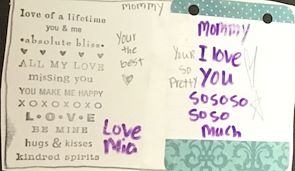 love of a lifetime
you & me
•absolute bliss•
ALL MY LOVE
missing you
YOU MAKE ME HAPPY
XOXOXOXO
L•O•V•E
BE MINE
hugs & kisses
kindred spirits
Mommy
Your
the
best
Love
Mia
Mommy
Your
so
Pretty
I love
You
sososo
soso
much